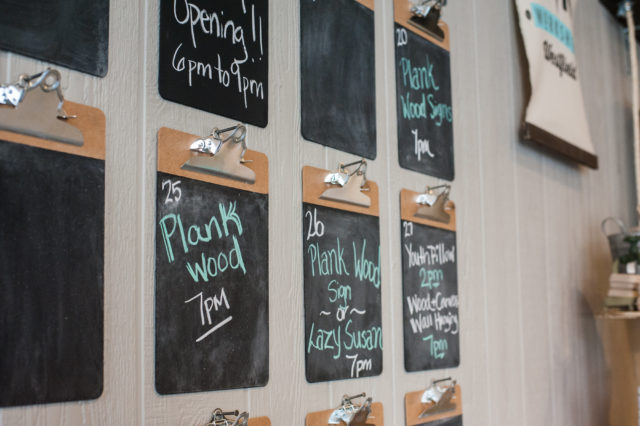 Opening!!
6pm to 9pm
20
Plank
Wood Signs
7pm
25
Plank
Wood
7PM
26
Plank Wood
Sign
~ or ~
Lazy Susan
7pm
27
Youth Pillow
2pm
Wood + Canvas
Wall Hanging
7pm